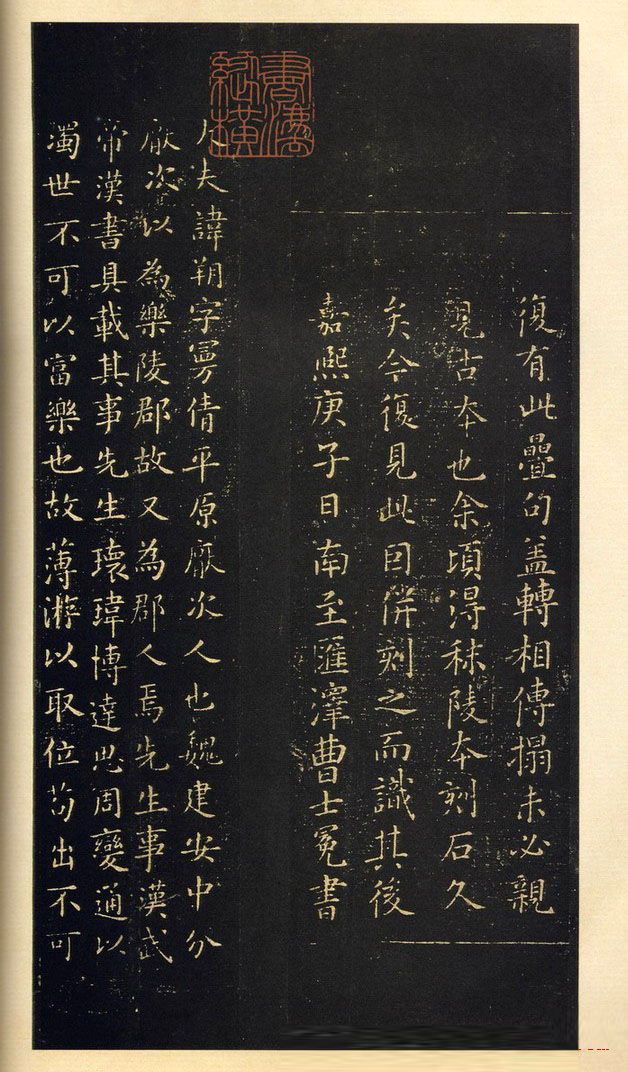 復有此疊句盖轉相傳搨未必親
見古本也余頃得秣陵本刻石久
矣今復見此因併刻之而識其後
嘉熙庚子日南至匯澤曹士冕書
大夫諱朔字曼倩平原厭次人也魏建安中分
厭次以為樂陵郡故又為郡人焉先生事漢武
帝漢書具載其事先生瓌瑋博達思周變通以
濁世不可以富樂也故薄游以取位苟出不可